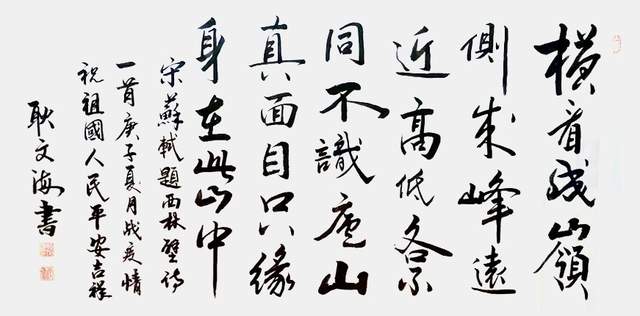 横看成嶺
側成峰遠
近高低各不
同不識廬山
真面目只緣
身在此山中
宋蘇軾題西林壁诗
一首庚子夏月战疫情
祝祖國人民平安吉祥
耿文海書